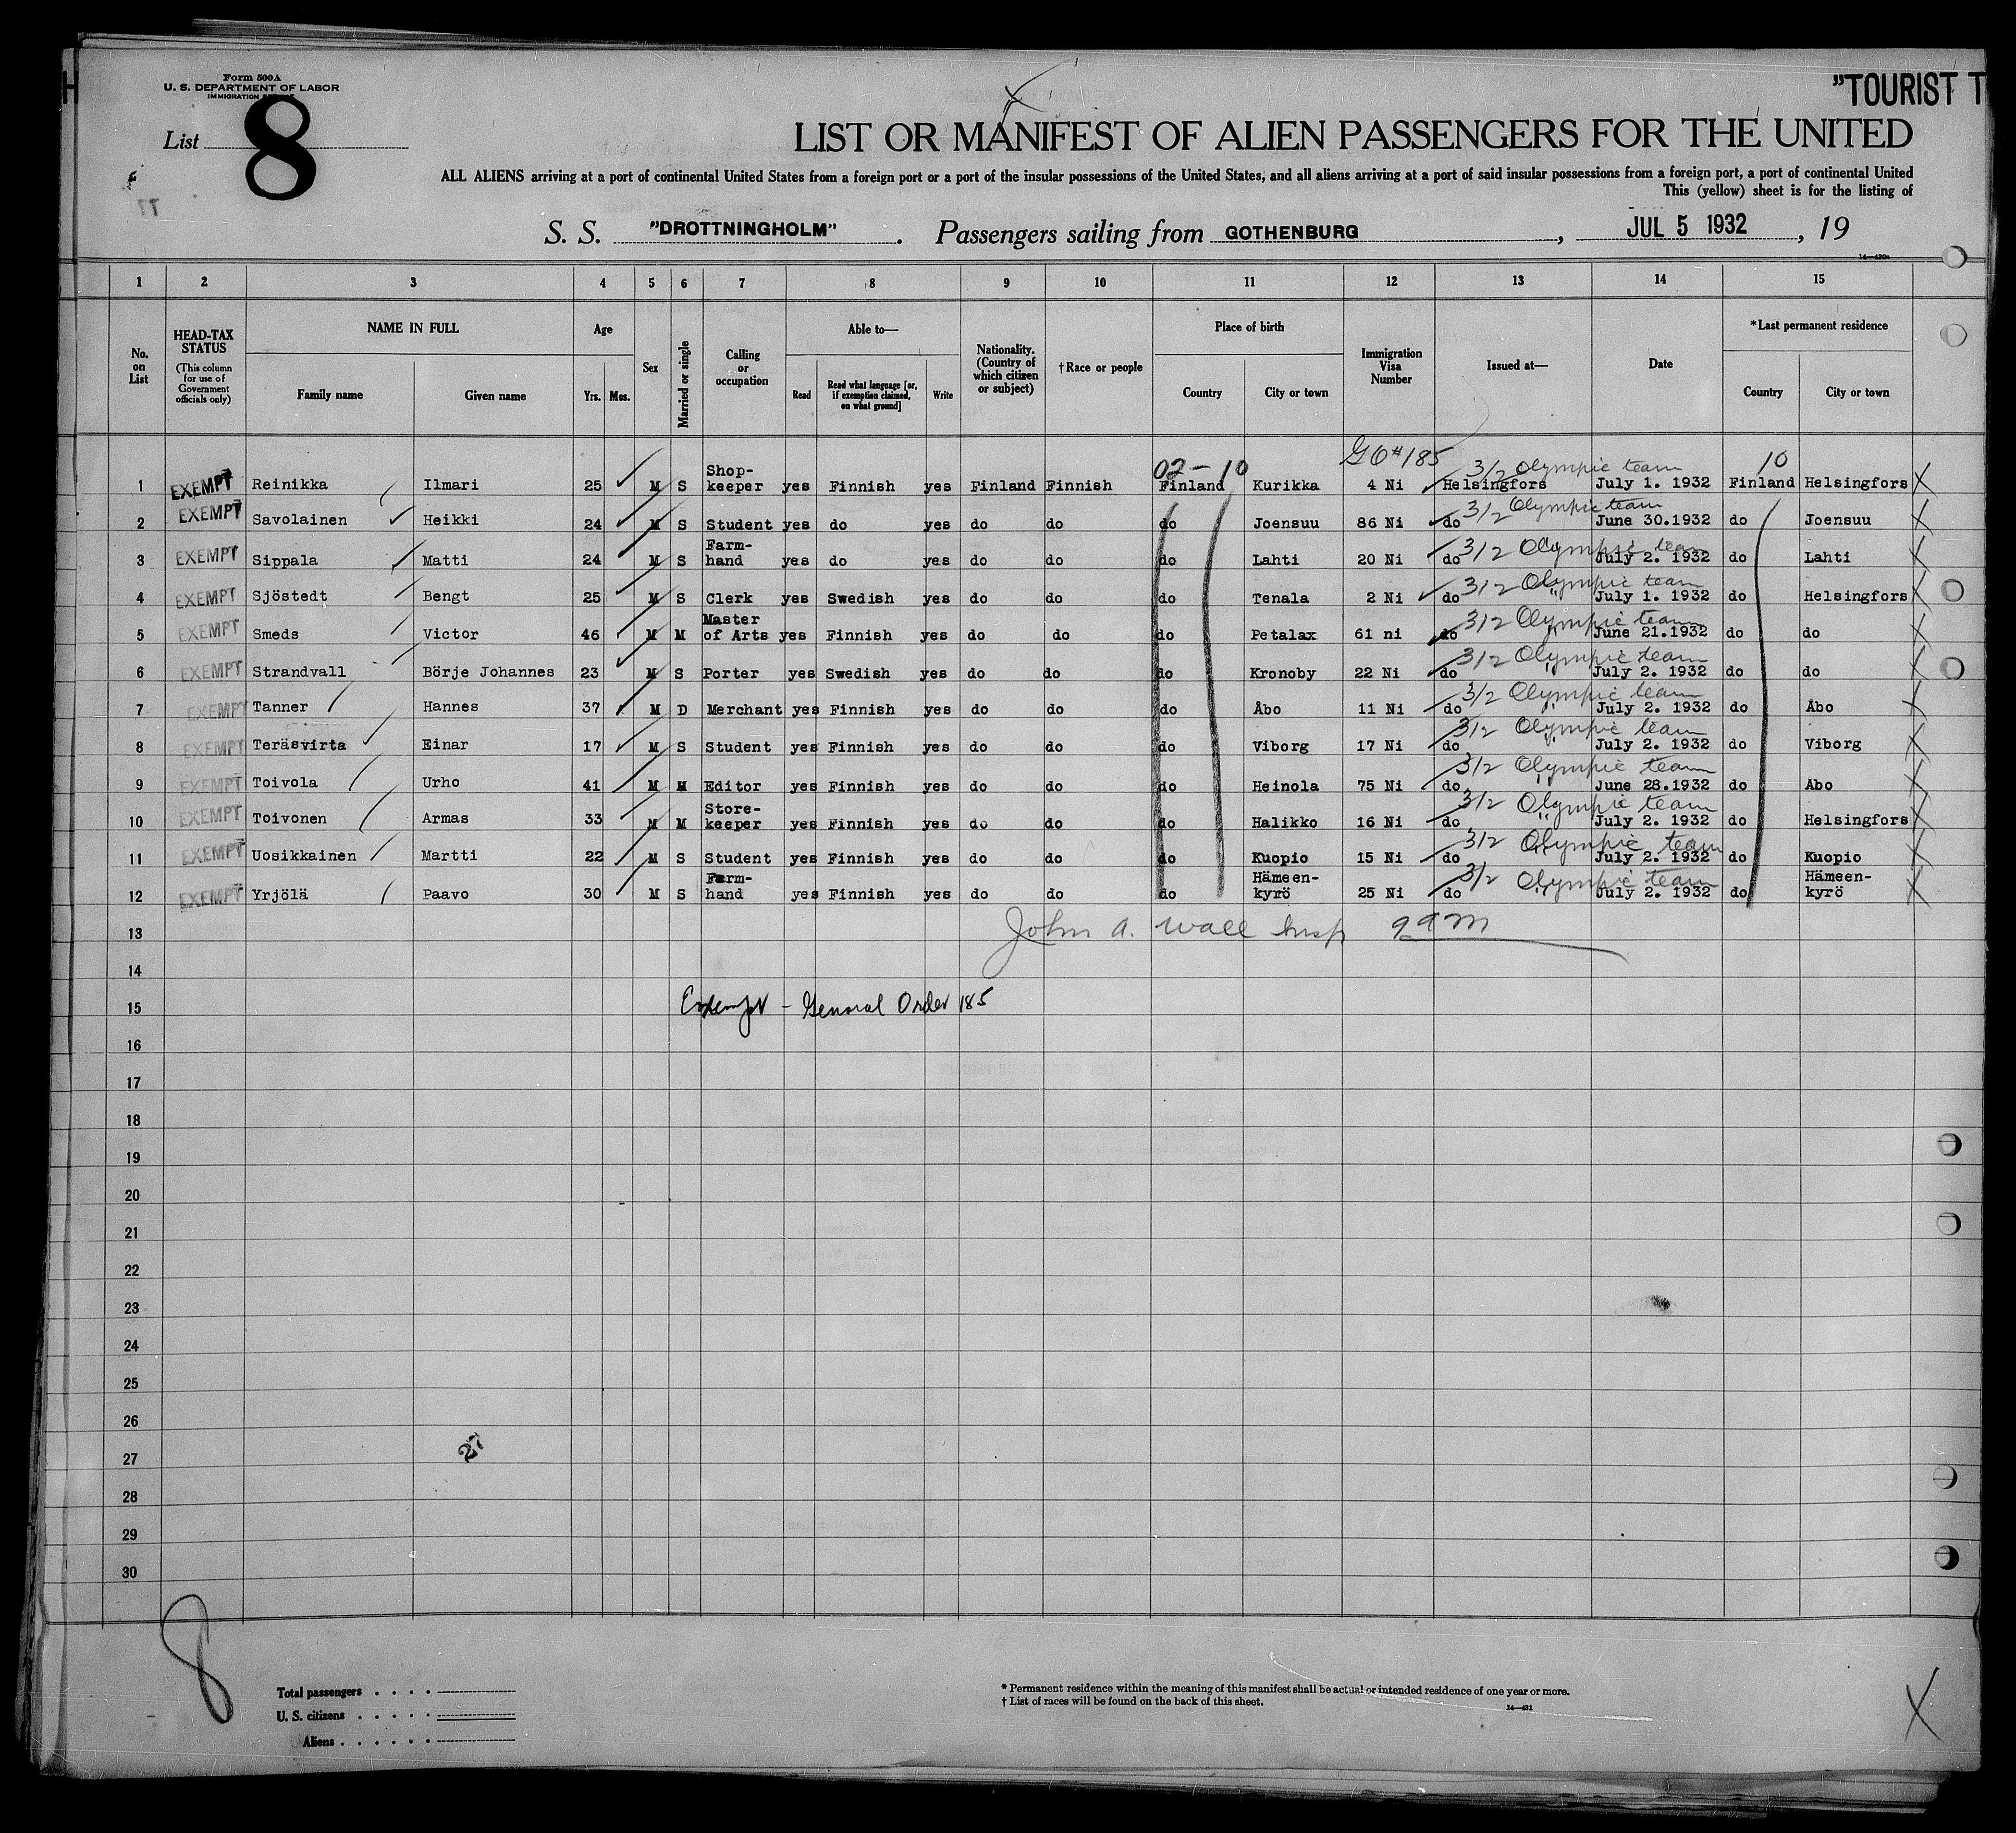 Form 500A
U. S. DEPARTMENT OF LABOR
IMMIGRATION
List 8
"TOURIST T
LIST OR MANIFEST OF ALIEN PASSENGERS FOR THE UNITED
ALL ALIENS arriving at a port of continental United States from a foreign port or a port of the insular possessions of the United States, and all aliens arriving at a port of said insular possessions from a foreign port, a port of continental United
This (yellow) sheet is for the listing of
S. S. "DROTTNINGHOLM". Passengers sailing from GOTHENBURG, JUL 5 1932, 19
1 2 3 4 5 6 7 8 9 10 11 12 13 14 15
No. on List
HEAD-TAX STATUS
(This column for use of Government officials only)
NAME IN FULL
Family name
Given name
Age
Yrs. Mos.
Sex
Married or single
Calling or occupation
Able to—
Read
Read what language [or, if exemption claimed, on what ground]
Write
Nationality. (Country of which citizen or subject)
†Race or people
Place of birth
Country
City or town
Immigration Visa Number
Issued at—
Date
*Last permanent residence
Country
City or town
02-10 GO#185 10
1 EXEMPT Reinikka Ilmari 25 M S Shop-keeper yes Finnish yes Finland Finnish Finland Kurikka 4 Ni Helsingfors 3/2 Olympic team July 1. 1932 Finland Helsingfors X
2 EXEMPT Savolainen Heikki 24 M S Student yes do yes do do do Joensuu 86 Ni do 3/2 Olympic team June 30.1932 do Joensuu X
3 EXEMPT Sippala Matti 24 M S Farm-hand yes do yes do do do Lahti 20 Ni do 3/2 Olympic team July 2. 1932 do Lahti X
4 EXEMPT Sjöstedt Bengt 25 M S Clerk yes Swedish yes do do do Tenala 2 Ni do 3/2 Olympic team July 1. 1932 do Helsingfors X
5 EXEMPT Smeds Victor 46 M M Master of Arts yes Finnish yes do do do Petalax 61 ni do 3/2 Olympic team June 21.1932 do do X
6 EXEMPT Strandvall Börje Johannes 23 M S Porter yes Swedish yes do do do Kronoby 22 Ni do 3/2 Olympic team July 2. 1932 do do X
7 EXEMPT Tanner Hannes 37 M D Merchant yes Finnish yes do do do Åbo 11 Ni do 3/2 Olympic team July 2. 1932 do Åbo X
8 EXEMPT Teräsvirta Einar 17 M S Student yes Finnish yes do do do Viborg 17 Ni do 3/2 Olympic team July 2. 1932 do Viborg X
9 EXEMPT Toivola Urho 41 M M Editor yes Finnish yes do do do Heinola 75 Ni do 3/2 Olympic team June 28.1932 do Abo X
10 EXEMPT Toivonen Armas 33 M M Store-keeper yes Finnish yes do do do Halikko 16 Ni do 3/2 Olympic team July 2. 1932 do Helsingfors X
11 EXEMPT Uosikkainen Martti 22 M S Student yes Finnish yes do do do Kuopio 15 Ni do 3/2 Olympic team July 2. 1932 do Kuopio X
12 EXEMPT Yrjölä Paavo 30 M S Farm-hand yes Finnish yes do do do Hämeen-kyrö 25 Ni do 3/2 Olympic team July 2. 1932 do Hämeen-kyrö X
13 John A. Wall Insp
14
15 Exempt - General Order 185
16
17
18
19
20
21
22
23
24
25
26
27
27
28
29
30
8
Total passengers . . . .
U. S. citizens . . . . .
Aliens . . . . . .
* Permanent residence within the meaning of this manifest shall be actual or intended residence of one year or more.
† List of races will be found on the back of this sheet.
X